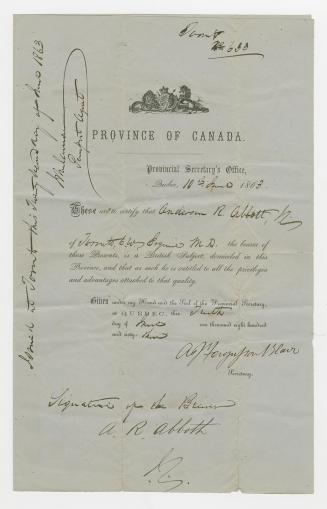 Toronto
No 633
PROVINCE OF CANADA.
Provincial Secretary's Office,
Quebec, 10th June 1863.
These are to certify that Anderson R. Abbott, Jr
of Toronto, C.W. Esquire M.D. the bearer of
these Presents, is a British Subject, domiciled in this
Province, and that as such he is entitled to all the privileges
and advantages attached to that quality.
Given under my Hand and the Seal of the Provincial Secretary,
at QUEBEC, this Tenth
day of June one thousand eight hundred
and sixty-three
A J Fergusson Blair
Secretary.
Signature of the Bearer
A. R. Abbott
Jr.
Issued at Toronto this day of June 1863
Passport Agent